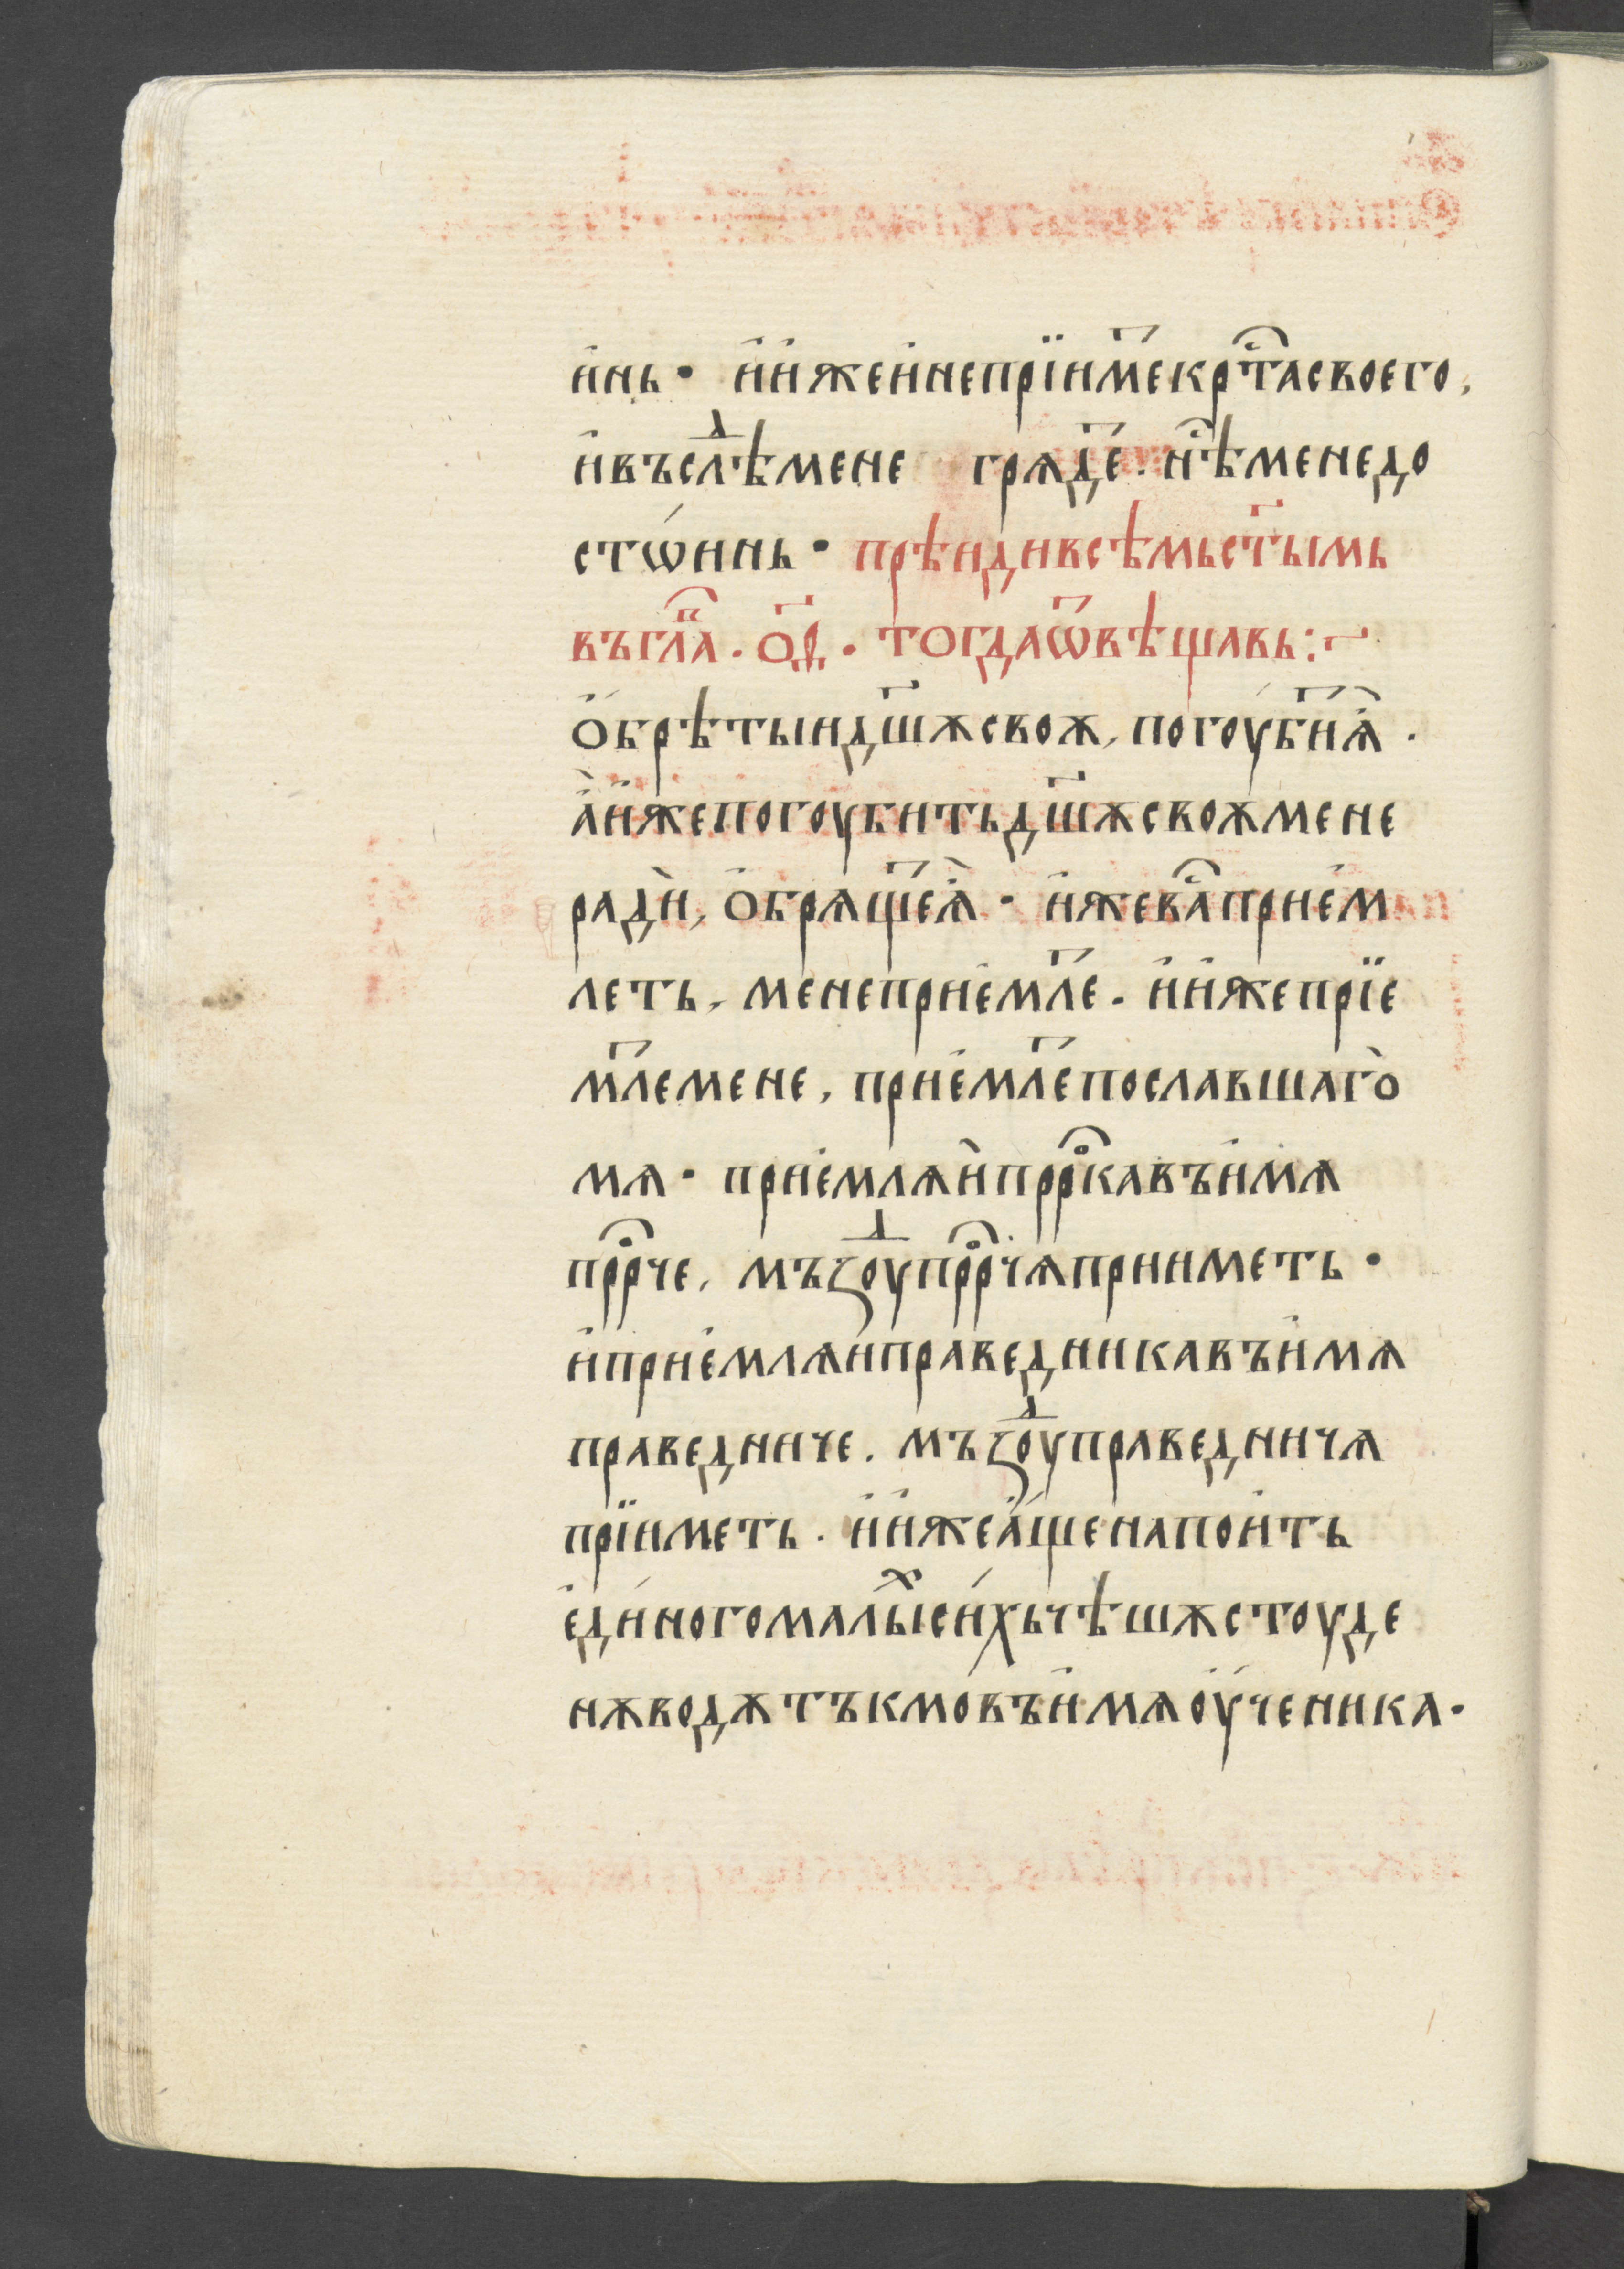 и҆нь · и҆и҆жеи҆непрїим҃екрⷭ҇тасвоего,
и҆въслⷣѣмене гряд҃е. нⷭ҇ѣменедо
стѡ́инь · прѣидивсѣмьст҃ымь
въглⷡ҇а . о҃д . тогдаѿвѣщавь:~
ѻ҆брѣтыидш҃ѫсвоѫ, погоуб҃иѧ̀ .
а҆и҆жепогоубитьдш҃ѫсвоѫмене
ради̇, ѻ҆брѧщ҃еѧ̀ · и҆жевⷭ҇априе҆м
леть, менеприе҆мл҃е . и҆и҆жепрїе
мл҃емене, прие҆мл҃епославшаго̀
мѧ · прие҆млѧи҆пррⷪ҇кавъи҆мѧ
пррⷪ҇че, мъꙁⷣоупррⷪ҇чѧприиметь ·
и҆прие҆млѧи҆праведникавъи҆мѧ
праведниче. мъꙁⷣоуправедничѧ
прїиметь . и҆и҆жеа҆́щенапои҆ть
е҆ди́ногомалыⷯси́хьчѣшѫстоуде
нѫводѫтъкмо́въи҆мѧоу҆ченика ·